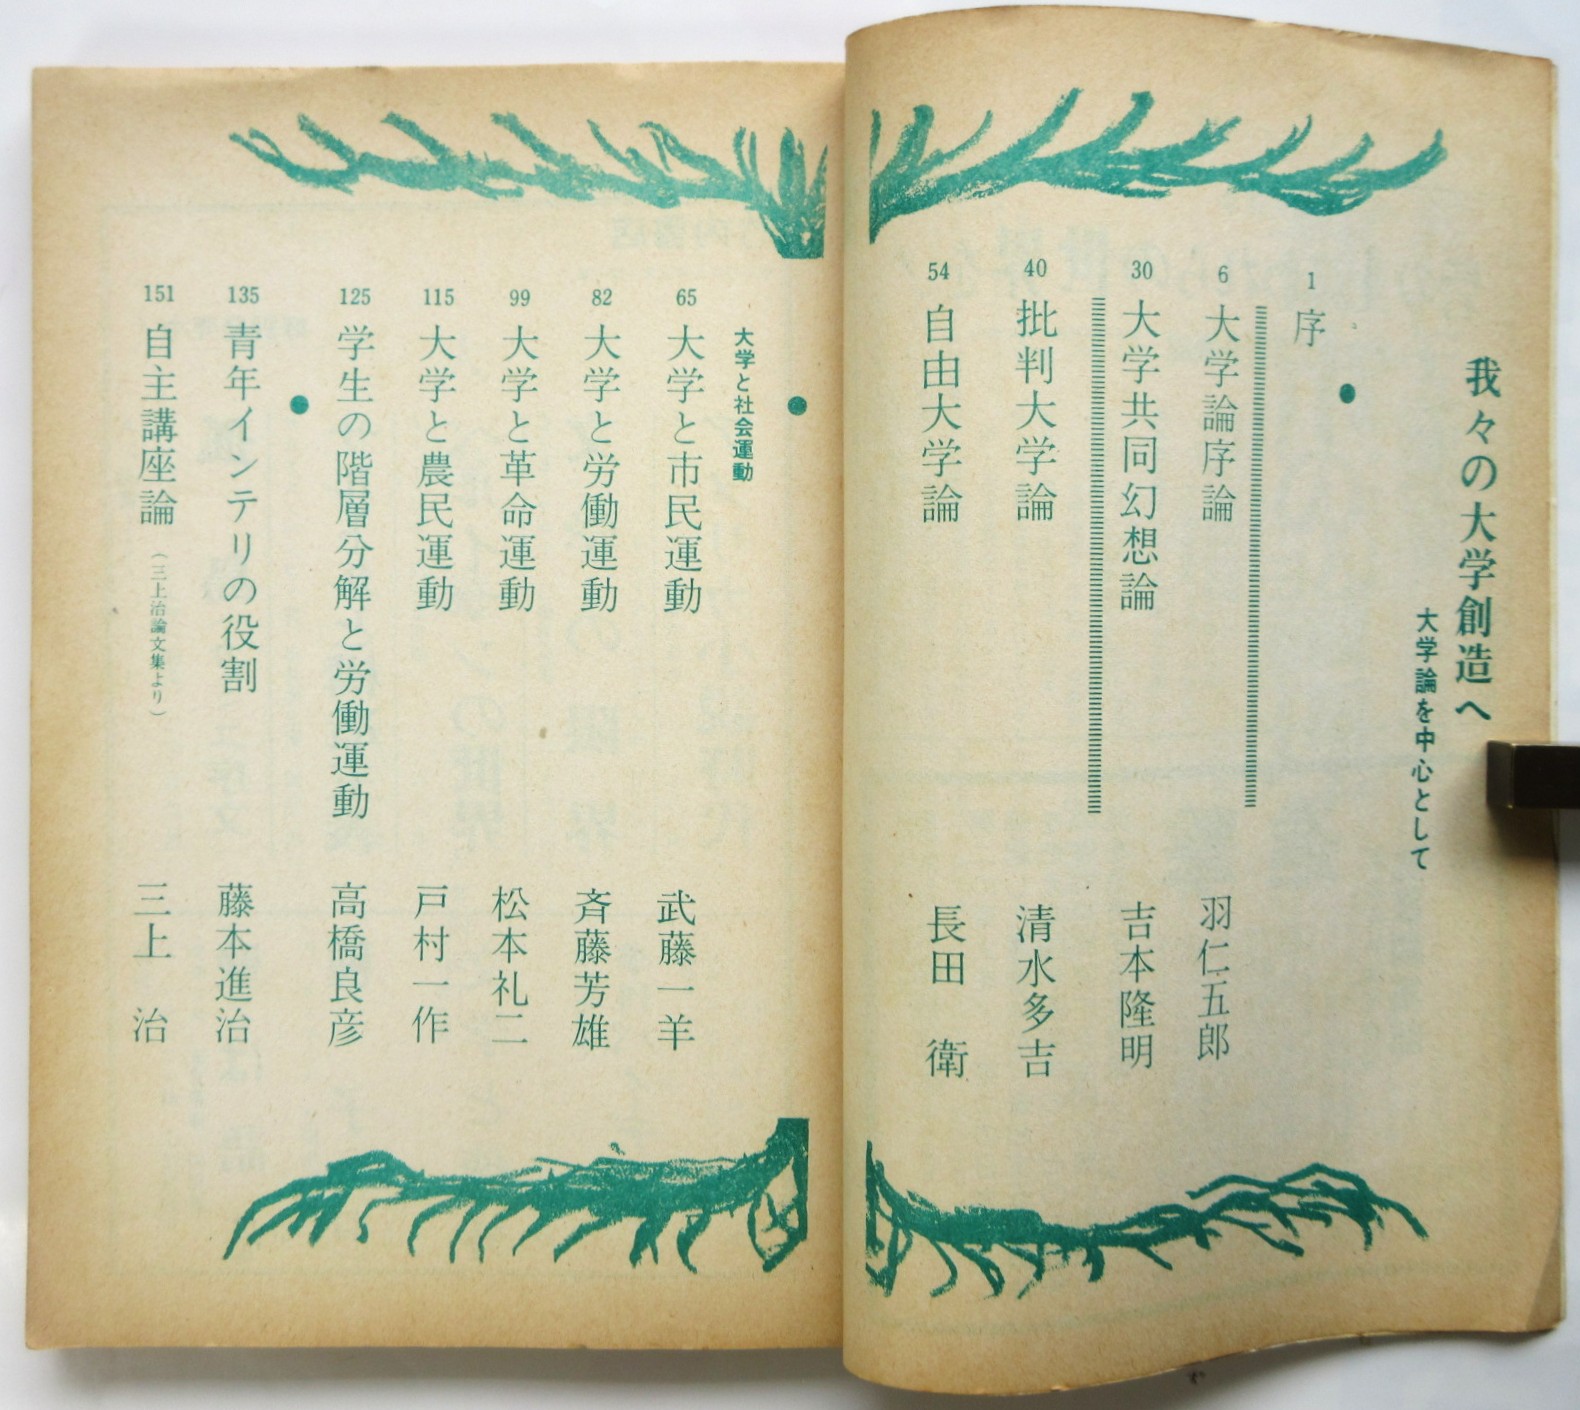 我々の大学創造へ
大学論を中心として
1 序
6 大学論序論 羽仁五郎
30 大学共同幻想論 吉本隆明
40 批判大学論 清水多吉
54 自由大学論 長田 衛
大学と社会運動
65 大学と市民運動 武藤一羊
82 大学と労働運動 斉藤芳雄
99 大学と革命運動 松本礼二
115 大学と農民運動 戸村一作
125 学生の階層分解と労働運動 高橋良彦
135 青年インテリの役割 藤本進治
151 自主講座論 (三上治論文集より) 三上 治